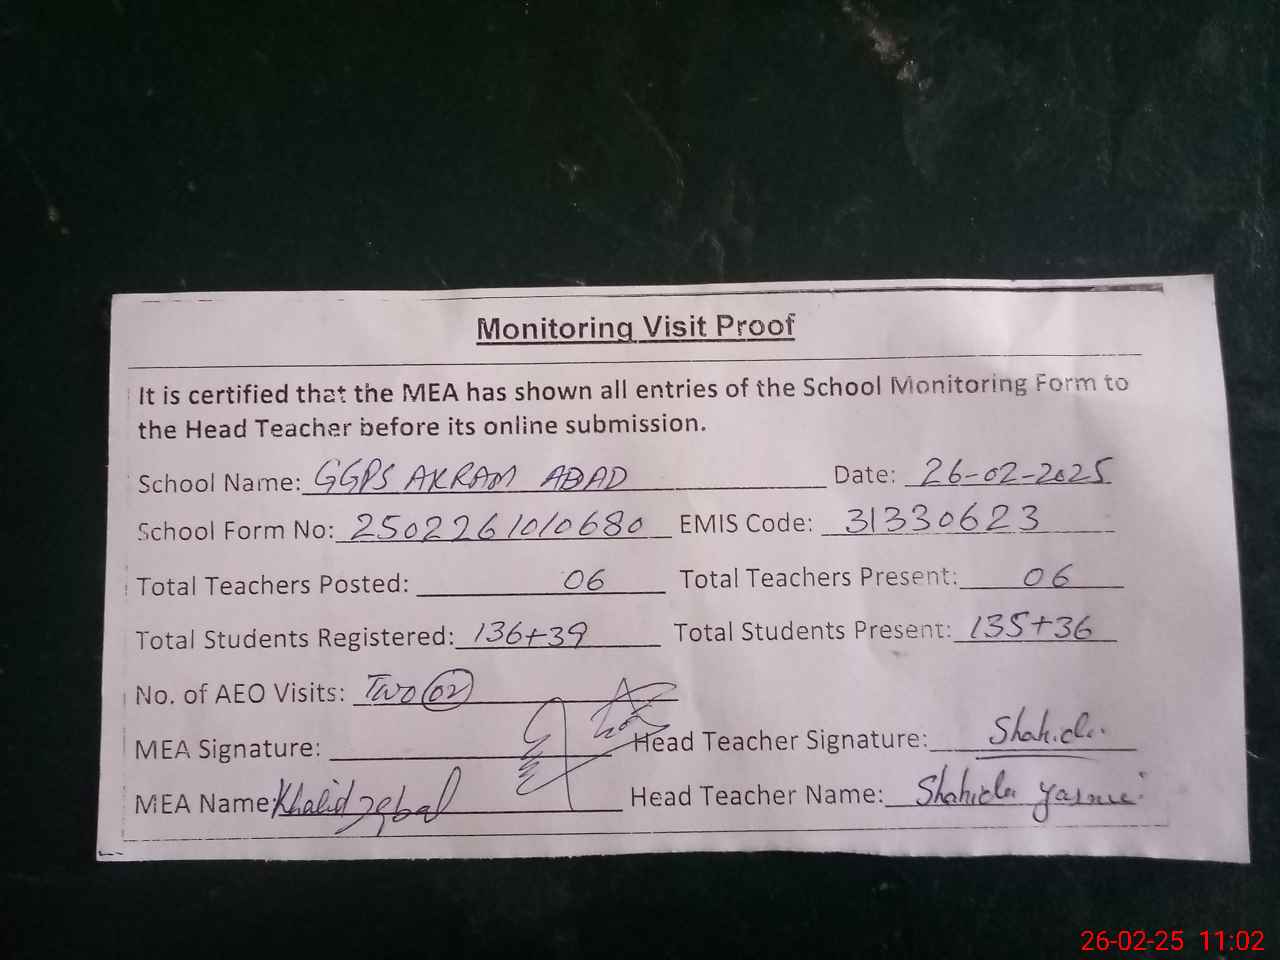 Monitoring Visit Proof
It is certified that the MEA has shown all entries of the School Monitoring Form to
the Head Teacher before its online submission.
School Name: GGPS AKRAM ABAD Date: 26-02-2025
School Form No: 2502261010680 EMIS Code: 31330623
Total Teachers Posted: 06 Total Teachers Present: 06
Total Students Registered: 136+39 Total Students Present: 135+36
No. of AEO Visits: Two 02
MEA Signature: Head Teacher Signature: Shahida
MEA Name: Khalid Iqbal Head Teacher Name: Shahida
26-02-25 11:02